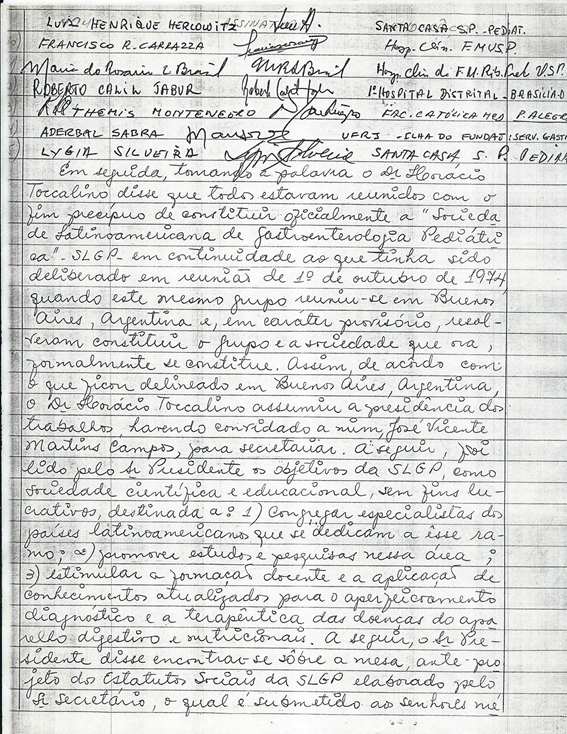 LUIZ HENRIQUE HERCOWITZ SANTA CASA S.P. - PEDIAT.
FRANCISCO R. CARRAZZA Hosp. Clin. FMUSP.
Maria do Rosario L Brasil MRBrasil Hosp. Clin. da F.M. Rib. Pret. U.S.P.
ROBERTO CALIL JABUR 1º HOSPITAL DISTRITAL - BRASILIA-D
THEMIS MONTENEGRO FAC. CATÓLICA MED P. ALEGR
ADERBAL SABRA UFRJ - ILHA DO FUNDÃO (SERV. GAST
LYGIA SILVEIRA Lygia Silveira SANTA CASA S. P. PEDIA
Em seguida, tomando a palavra o Dr Horácio
Toccalino disse que todos estavam reunidos com o
fim precípuo de constituir oficialmente a "Socieda
de Latinoamericana de Gastroenterologia Pediátri
ca" - SLGP - em continuidade ao que tinha sido
deliberado em reunião de 1º de outubro de 1974,
quando este mesmo grupo reuniu-se em Buenos
Aires, Argentina e, em caráter provisório, resol-
veram constituir o grupo e a sociedade que ora,
formalmente se constitue. Assim, de acôrdo com
o que ficou delineado em Buenos Aires, Argentina,
o Dr Horácio Toccalino assumiu a presidência dos
trabalhos havendo convidado a mim, José Vicente
Martins Campos, para secretariar. A seguir, foi
lido pelo Sr Presidente os objetivos da SLGP, como
sociedade científica e educacional, sem fins lu-
crativos, destinada a: 1) Congregar especialistas dos
países latinoamericanos que se dedicam a êsse ra-
mo; 2) promover estudos e pesquisas nessa área;
3) estimular a formação docente e a aplicação de
conhecimentos atualizados para o aperfeiçoamento
diagnóstico e a terapêutica das doenças do apa
relho digestivo e nutricionais. A seguir, o Sr Pre-
sidente disse encontrar-se sôbre a mesa, ante-pro
jeto dos Estatutos Sociais da SLGP elaborado pelo
Sr Secretário, o qual é submetido ao senhores mé